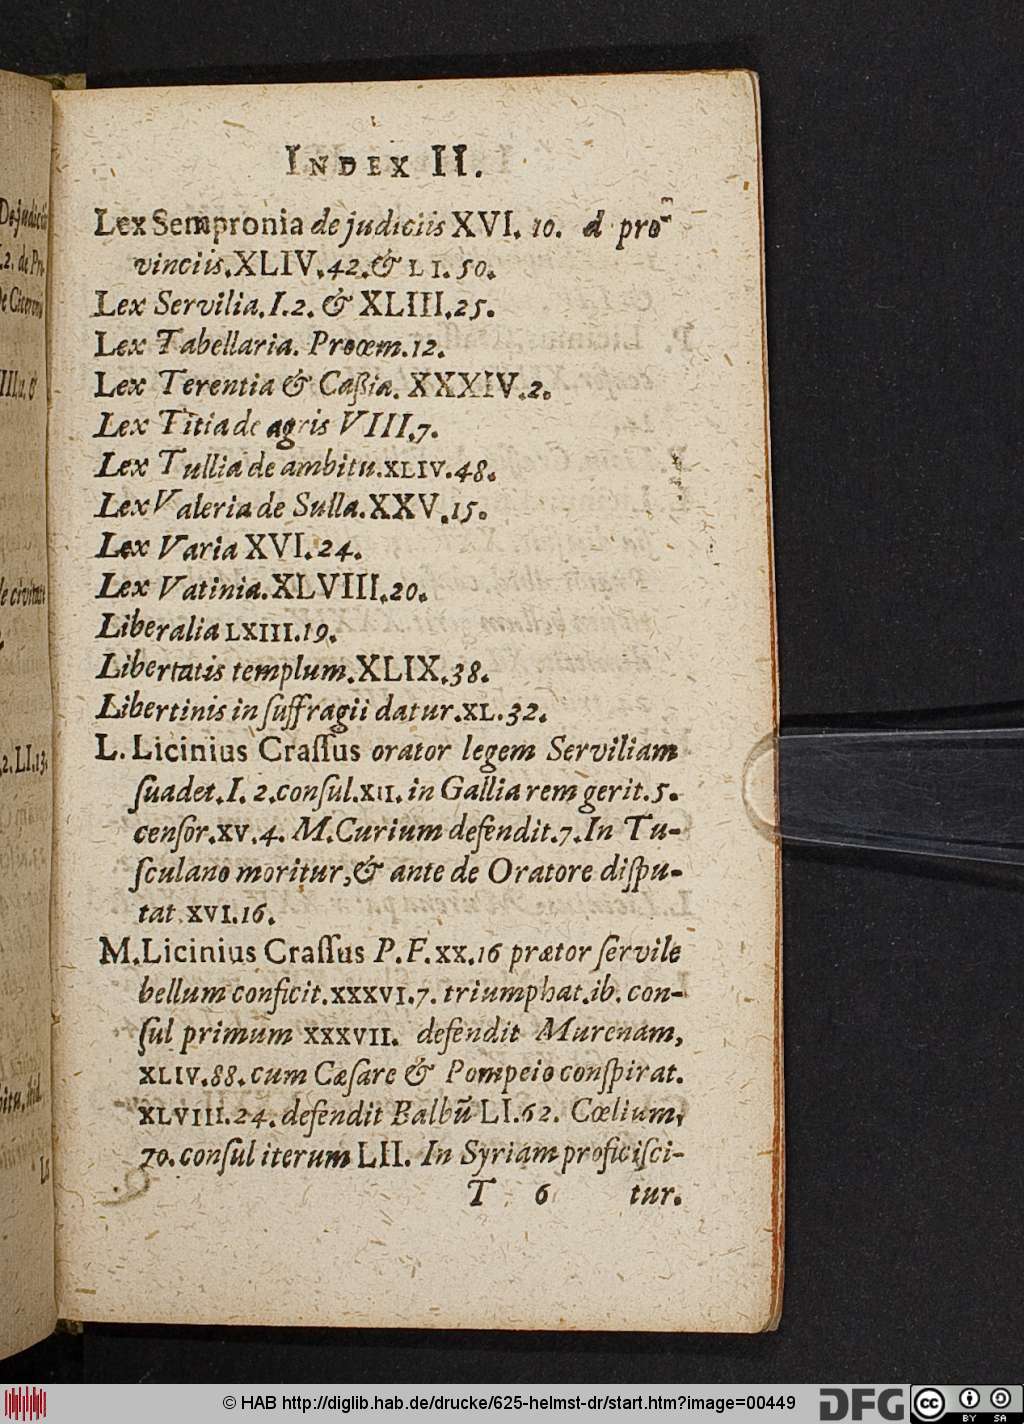 INDEX II.
Lex Sempronia de judiciis XVI. 10. d pro-
vinciis. XLIV. 42. & LI. 50.
Lex Servilia. I. 2. & XLIII. 25.
Lex Tabellaria. Proœm. 12.
Lex Terentia & Caßia. XXXIV. 2.
Lex Titia de agris VIII. 7.
Lex Tullia de ambitu. XLIV. 48.
Lex Valeria de Sulla. XXV. 15.
Lex Varia XVI. 24.
Lex Vatinia. XLVIII. 20.
Liberalia LXIII. 19.
Libertatis templum. XLIX. 38.
Libertinis in ſuffragii datur. XL. 32.
L. Licinius Craſſus orator legem Serviliam
ſuadet. I. 2. conſul. XII. in Gallia rem gerit. 5.
cenſor. XV. 4. M. Curium defendit. 7. In Tu-
ſculano moritur, & ante de Oratore diſpu-
tat XVI. 16.
M. Licinius Craſſus P. F. XX. 16 prætor ſervile
bellum conficit. XXXVI. 7. triumphat. ib. con-
ſul primum XXXVII. defendit Murenam,
XLIV. 88. cum Cæſare & Pompeio conſpirat.
XLVIII. 24. defendit Balbũ LI. 62. Cœlium,
70. conſul iterum LII. In Syriam proficiſci-
T 6 tur.
© HAB http://diglib.hab.de/drucke/625-helmst-dr/start.htm?image=00449
DFG
cc
BY SA